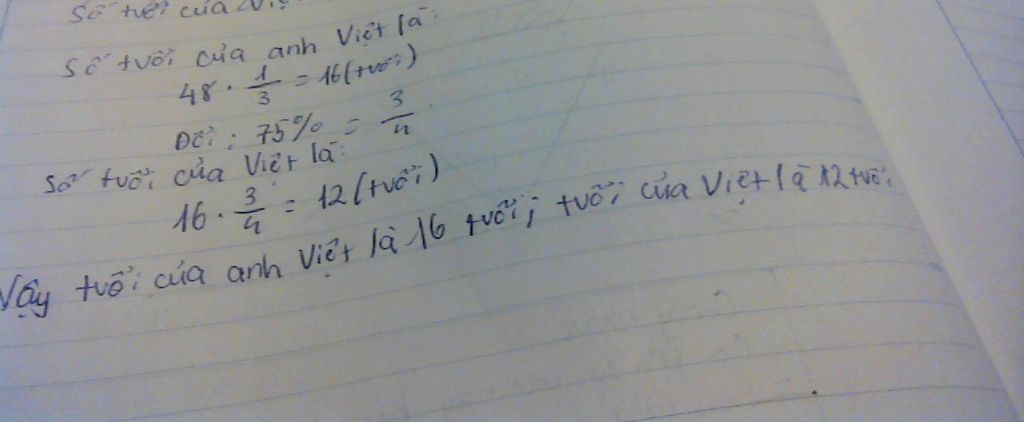 Số tuổi của Việ
Số tuổi của anh Việt là:
48 . 1/3 = 16 (tuổi)
Đổi : 75% = 3/4
Số tuổi của Việt là:
16 . 3/4 = 12 (tuổi)
Vậy tuổi của anh Việt là 16 tuổi; tuổi của Việt là 12 tuổi.